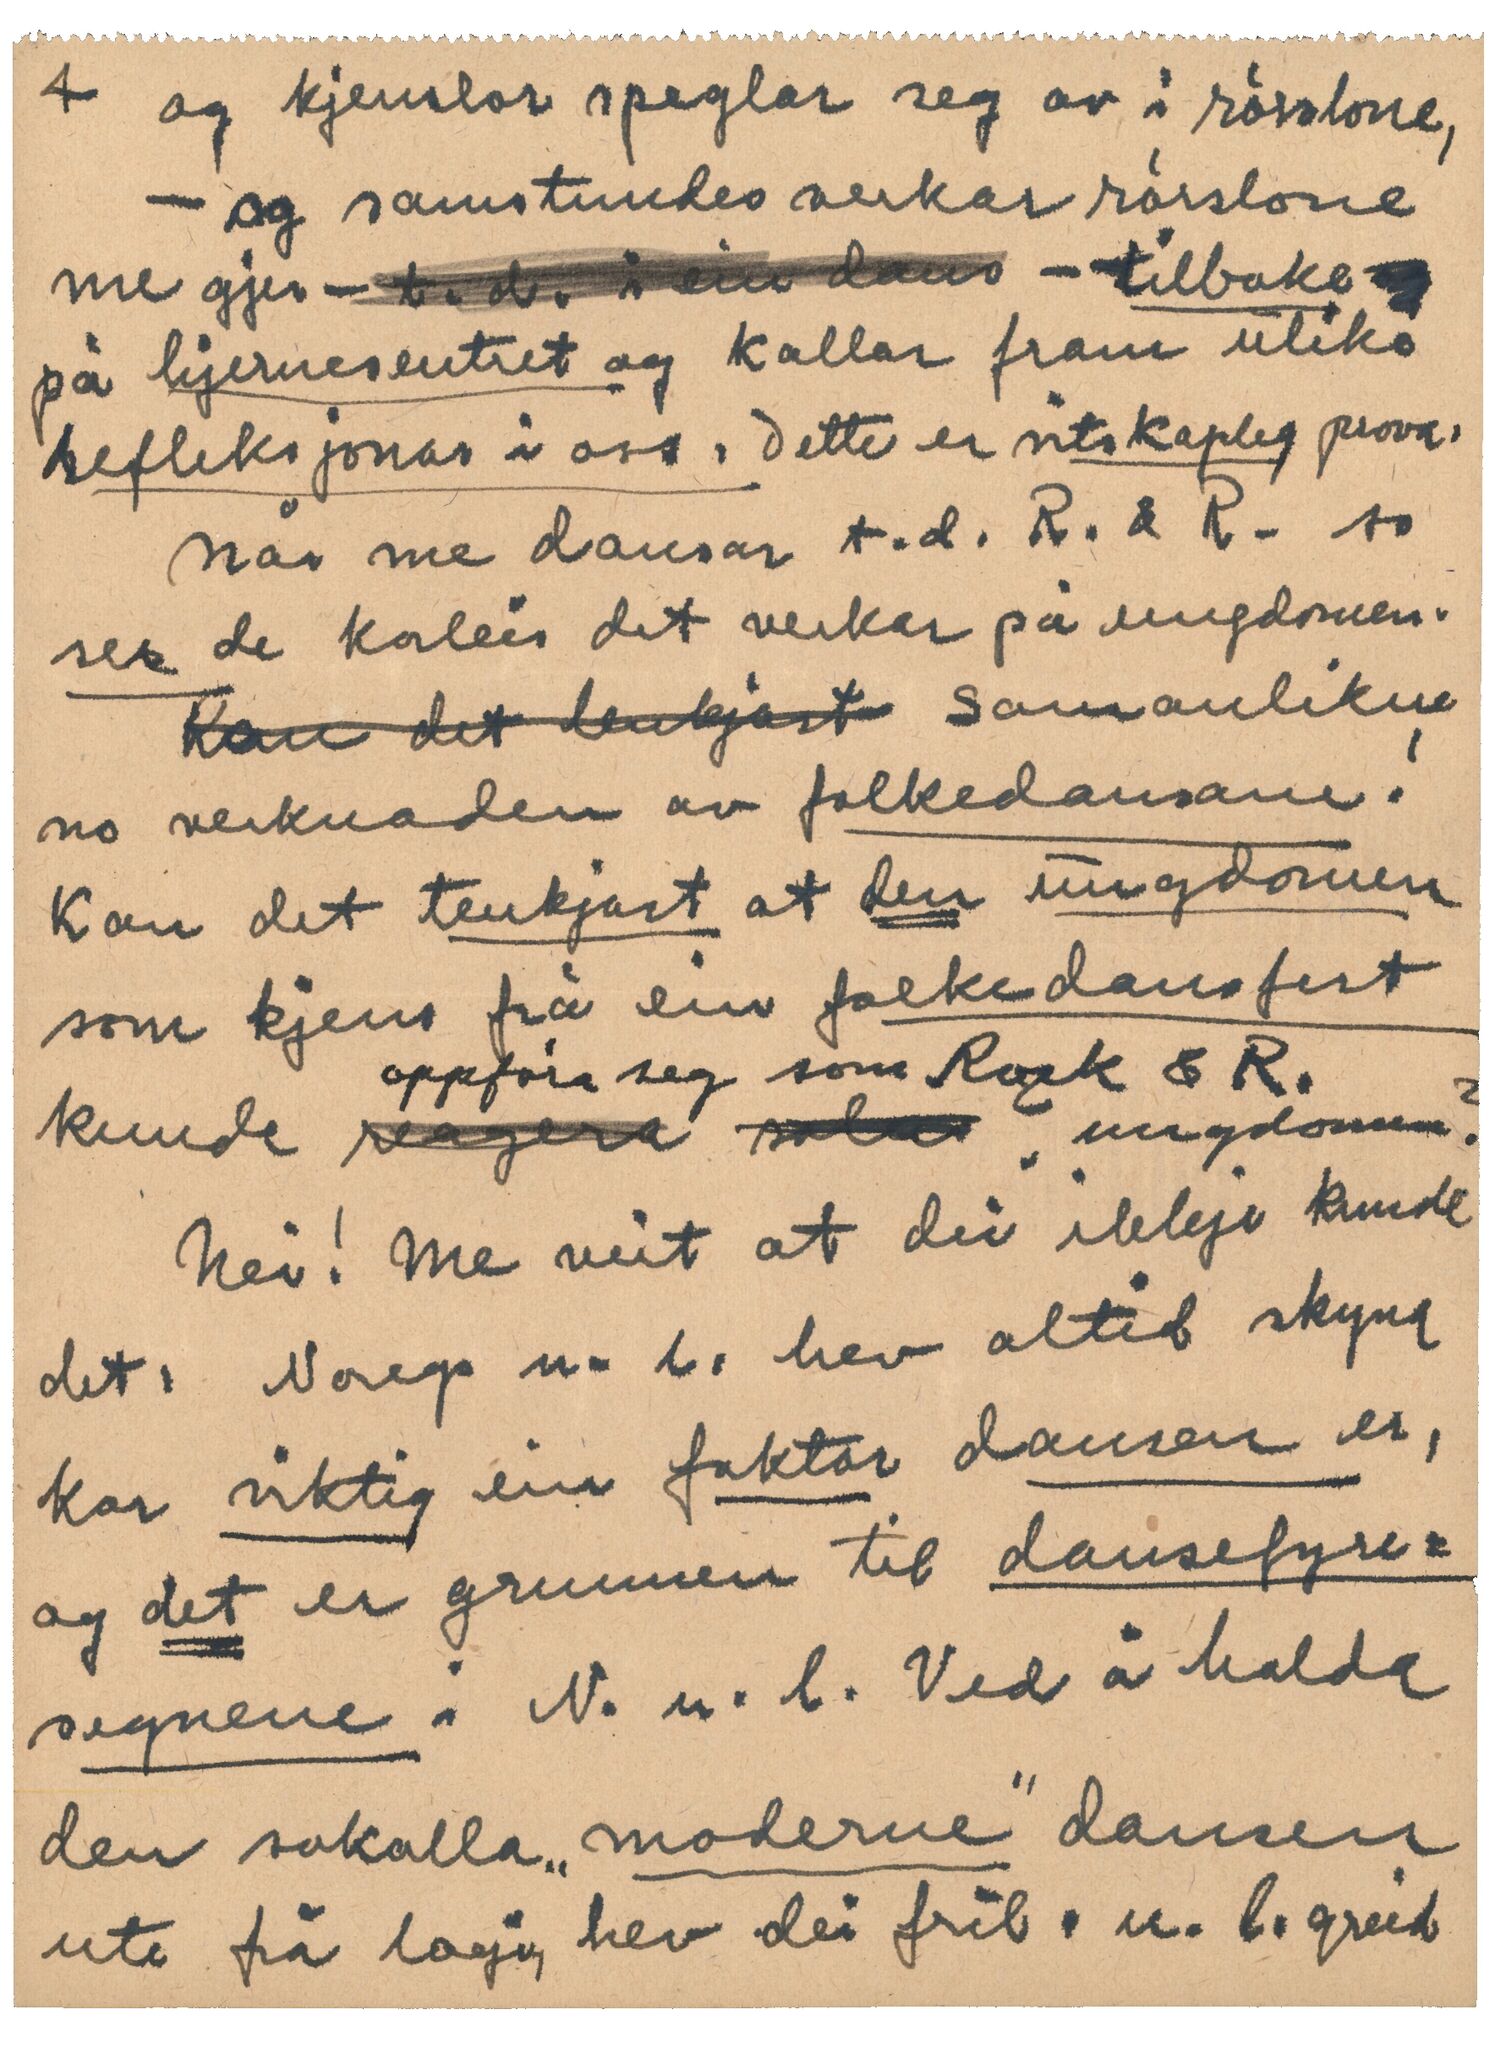 4 og kjenslor speglar seg av i rörslone,
– og samstundes verkar rörslone
me gjer – t.d. i ein dans – tilbake
på hjernesentret og kallar fram ulike
refleksjonar i oss. Dette er vitskapleg prova.
Når me dansar t.d. R. & R. so
ser de korleis det verkar på ungdomen.
Kan det tenkjast Samanlikne
no verknaden av folkedansane!
Kan det tenkjast at den ungdomen
som kjem frå ein folkedansfest
oppföra seg som Rock & R.
kunde reagera ungdomen?
Nei! Me veit at dei ikkje kunde
det. Noregs u. l. hev altid skyna
kor viktig ein faktor dansen er,
og det er grunnen til dansefyre=
segnene i N. u. l. Ved å halda
den sokalla „moderne" dansen
ute frå laga, hev dei fril. u. l. greid